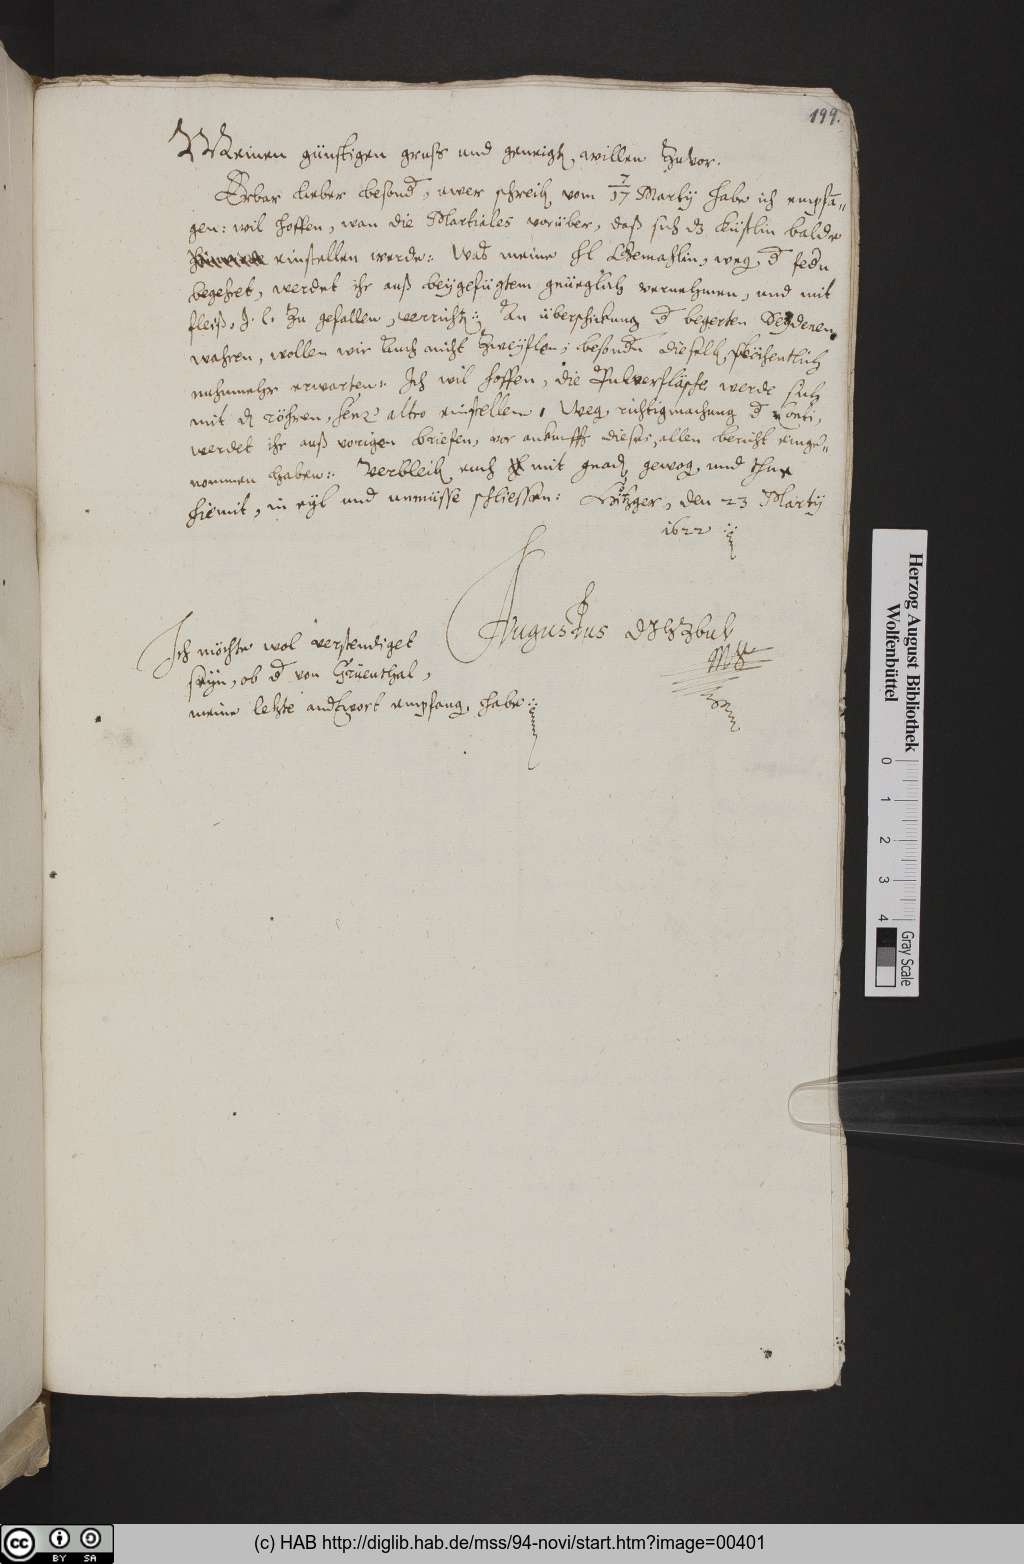 199.
Meinen günstigen gruß und geneigt. willen zuvor.
Erbar lieber besond., ewer schreib. vom 7/17 Martÿ habe ich empfā-
gen: wil hoffen, wan die Martiales vorüber, daß sich dz küstlin balde
einstellen werde: Was meine hl Gemahlin, weg. d fedn
begehret, werdet ihr auß beÿgefügtem gnüeglich vernehmen, und mit
fleiß, J. l. zu gefallen, verricht.: An überschickung d begerten Seÿdenen
wahren, wollen wir auch nicht zweÿflen; besondn dieselb.
nuhnmehr erwarten: Ich wil hoffen, die werde sich
mit d. röhren, senz' altro einstellen, Weg. richtigmachung d Conti,
werdet ihr auß vorigen briefen, vor ankunfft dieses, allen bericht einge-
nommen haben: Verbleib. euch mit gnad. gewog. und thue
hiemit, in eÿl und unmüsse schliessen: Hitzger, den 23 Martÿ
1622
Augustus DJHZBUL
Mpp
Ich möchte wol verstendiget
seÿn, ob d von Grüenthal,
meine letzte andtwort empfang. habe:
Herzog August Bibliothek
Wolfenbüttel
0 1 2 3 4
Gray Scale
cc BY SA
(c) HAB http://diglib.hab.de/mss/94-novi/start.htm?image=00401